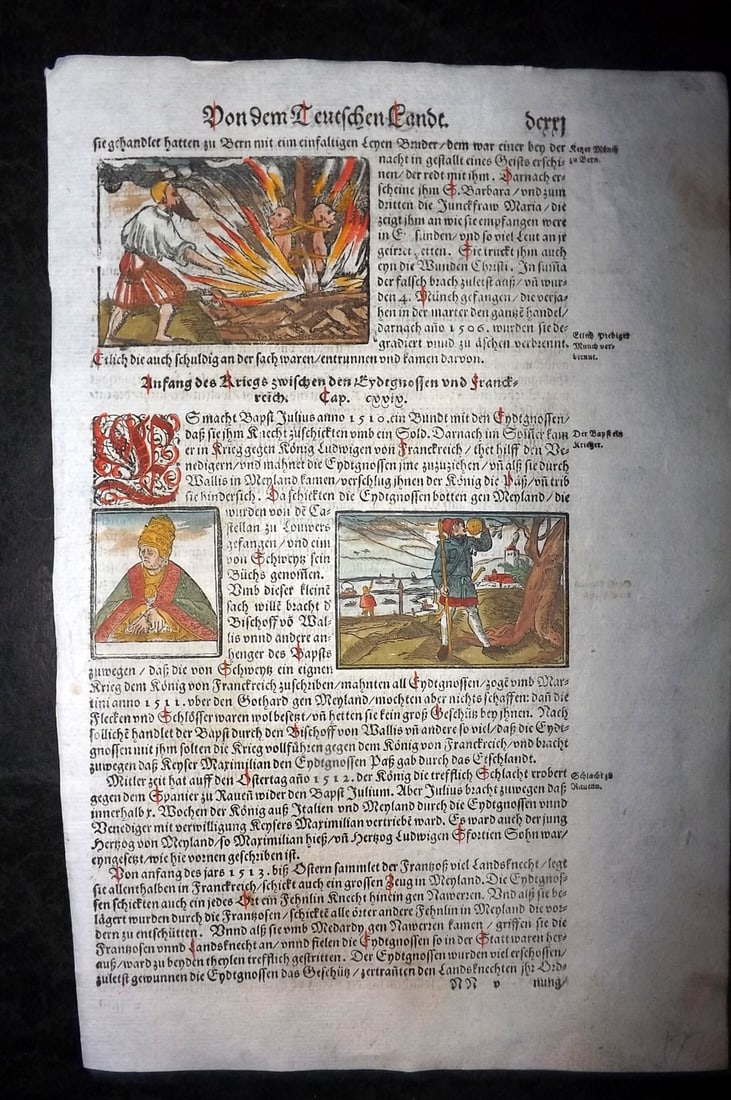 Von dem Teutschen Landt. dcxxj
sie gehandlet hatten zu Bern mit eim einfaltigen Leyen Bruder/dem war einer bey der
Ketzer Münch
zu Bern.
nacht in gestallt eines Geists erschi-
nen/der redt mit ihm. Darnach er-
scheine ihm S. Barbara/vnd zum
dritten die Junckfraw Maria/die
zeigt ihm an wie sie empfangen were
in E sünden/vnd so viel Leut an jr
geirret etten. Sie truckt jhm auch
eyn die Wunden Christi. In sum̃a
der falsch brach zuletst auß/vñ wur-
den 4. Münch gefangen/die verja-
hen in der marter den gantzẽ handel/
darnach año 1506. wurden sie de-
gradiert vnnd zu äschen verbrennt.
Etlich Prediger
Münch ver-
brennt.
Etlich die auch schuldig an der sach waren/entrunnen vnd kamen darvon.
Anfang des Kriegs zwischen den Eydtgnossen vnd Franck-
reich. Cap. cxxix.
ES macht Bapst Julius anno 1510. ein Bundt mit den Eydtgnossen/
daß sie jhm Knecht zuschickten vmb ein Sold. Darnach im Som̃er kam
Der Bapst ein
Krieger.
er in Krieg gegen König Ludwigen von Franckreich/thet hilff den Ve-
nedigern/vnd mahnet die Eydtgnossen jme zuzuziehen/vñ alß sie durch
Wallis in Meyland kamen/verschlug jhnen der König die Päß/vñ trib
sie hindersich. Da schickten die Eydtgnossen botten gen Meyland/die
wurden von dẽ Ca-
stellan zu Louwers
gefangen/vnd eim
von Schweytz sein
Büchs genom̃en.
Vmb dieser kleinẽ
sach willẽ bracht ď
Bischoff võ Wal-
lis vnnd andere an-
henger des Bapsts
zuwegen/daß die von Schweytz ein eignen
Krieg dem König von Franckreich zuschriben/mahnten all Eydtgnossen/zogẽ vmb Mar-
tini anno 1511. vber den Gothard gen Meyland/mochten aber nichts schaffen: dañ die
Flecken vnd Schlösser waren wol besetzt/vñ hetten sie kein groß Geschütz bey jhnen. Nach
sollicht handlet der Bapst durch den Bischoff von Wallis vñ andere so viel/daß die Eydt-
gnossen mit jhm solten die Krieg vollführen gegen dem König von Franckreich/vnd bracht
zuwegen daß Keyser Maximilian den Eydtgnossen Paß gab durch das Etschlandt.
Mitler zeit hat auff den Ostertag año 1512. der König die trefflich Schlacht erobert
Schlacht zu
Rauenn.
gegen dem Spanier zu Raueñ wider den Bapst Julium. Aber Julius bracht zuwegen daß
innerhalb x. Wochen der König auß Italien vnd Meyland durch die Eydtgnossen vnnd
Venediger mit verwilligung Keysers Maximilian vertriebẽ ward. Es ward auch der jung
Hertzog von Meyland/so Maximilian hieß/vñ Hertzog Ludwigen Sfortien Sohn war/
eyngesetzt/wie hie vornen geschriben ist.
Von anfang des jars 1513. biß Ostern sammlet der Frantzoß viel Landsknecht/legt
sie allenthalben in Franckreich/schickt auch ein grossen Zeug in Meyland. Die Eydtgnoß-
sen schickten auch ein jedes Ort ein Fehnlin Knecht hinein gen Nawerren. Vnd alß sie be-
lägert wurden durch die Frantzosen/schicktẽ alle örter andere Fehnlin in Meyland die vor-
dern zu entschütten. Vnnd alß sie vmb Medardy gen Nawerren kamen/griffen sie die
Frantzosen vnnd Landsknecht an/vnnd fielen die Eydtgnossen so in der Statt waren her-
auß/ward zu beyden theylen trefflich gestritten. Der Eydtgnossen wurden viel erschossen/
zuletst gewunnen die Eydtgnossen das Geschütz/zertrañten den Landsknechten jhr Ord-
NN v nung/